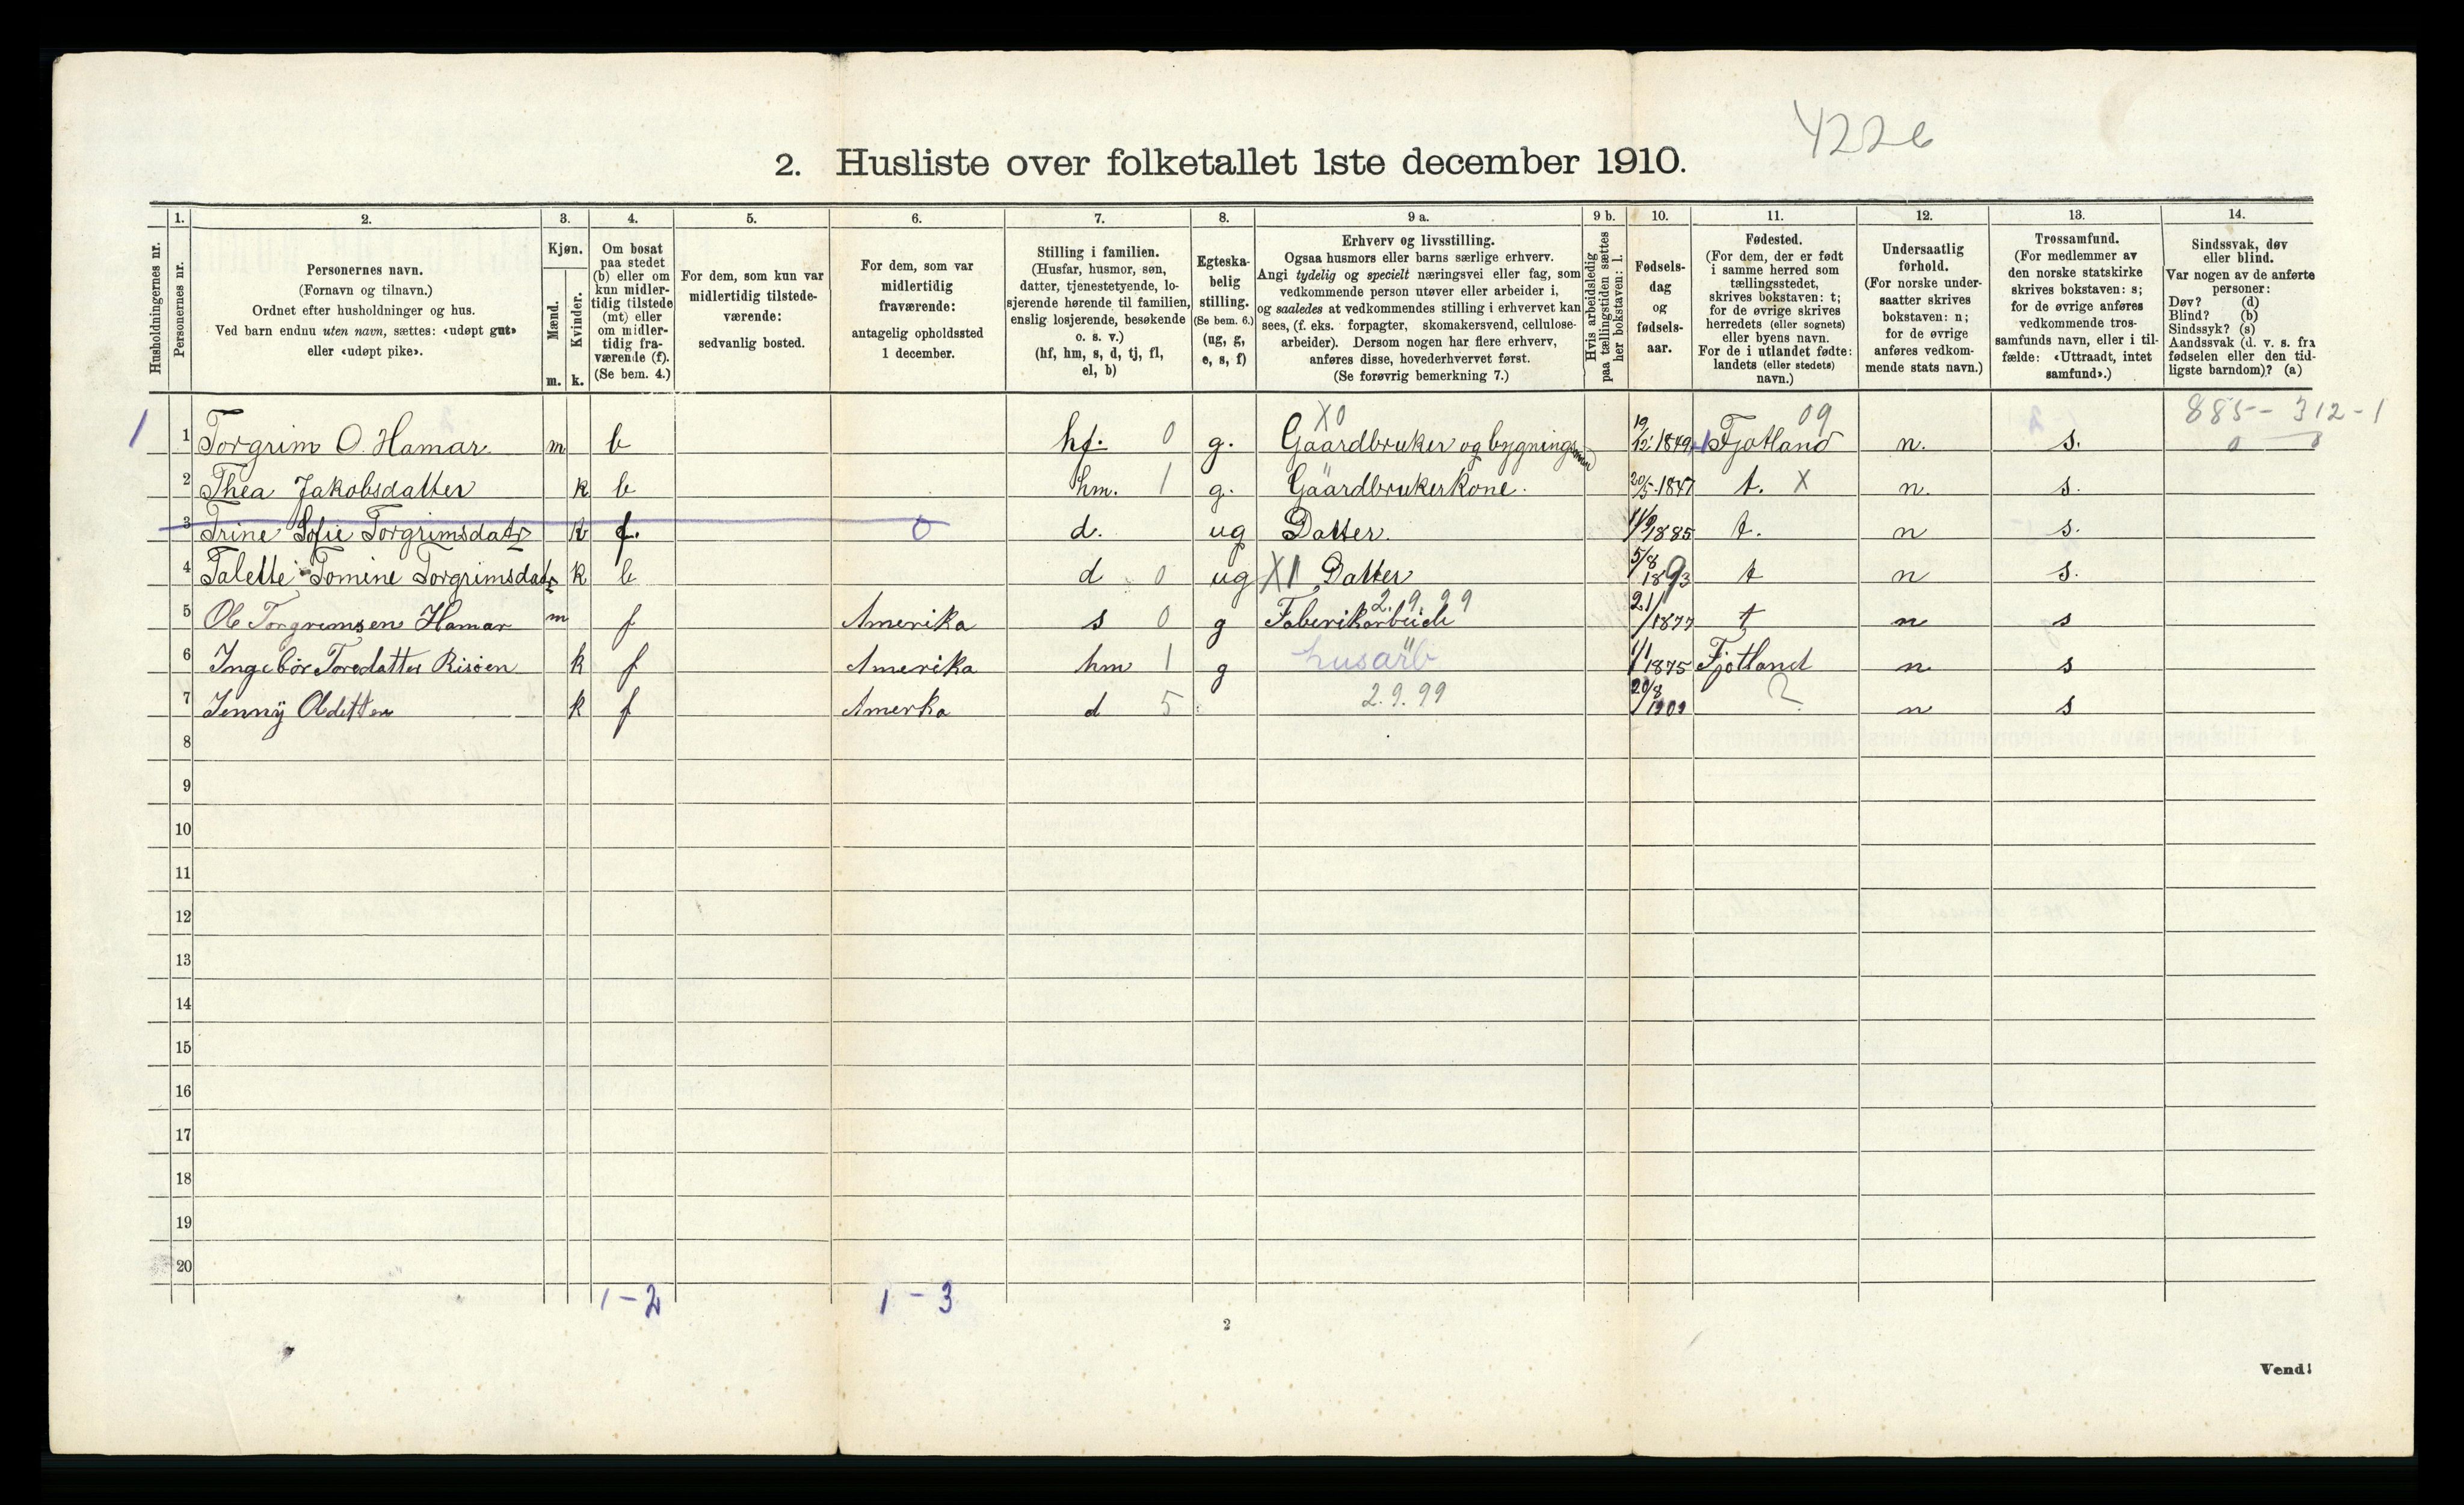 4226
2. Husliste over folketallet 1ste december 1910.
Husholdningernes nr.
1.
Personernes nr.
2.
Personernes navn.
(Fornavn og tilnavn.)
Ordnet efter husholdninger og hus.
Ved barn endnu uten navn, sættes: «udøpt gut»
eller «udøpt pike».
3.
Kjøn.
Mænd.
m.
Kvinder.
k.
4.
Om bosat
paa stedet
(b) eller om
kun midler-
tidig tilstede
(mt) eller
om midler-
tidig fra-
værende (f).
(Se bem. 4.)
5.
For dem, som kun var
midlertidig tilstede-
værende:
sedvanlig bosted.
6.
For dem, som var
midlertidig
fraværende:
antagelig opholdssted
1 december.
7.
Stilling i familien.
(Husfar, husmor, søn,
datter, tjenestetyende, lo-
sjerende hørende til familien,
enslig losjerende, besøkende
o. s. v.)
(hf, hm, s, d, tj, fl,
el, b)
8.
Egteska-
belig
stilling.
(Se bem. 6.)
(ug, g,
e, s, f)
9 a.
Erhverv og livsstilling.
Ogsaa husmors eller barns særlige erhverv.
Angi tydelig og specielt næringsvei eller fag, som
vedkommende person utøver eller arbeider i,
og saaledes at vedkommendes stilling i erhvervet kan
sees, (f. eks. forpagter, skomakersvend, cellulose-
arbeider). Dersom nogen har flere erhverv,
anføres disse, hovederhvervet først.
(Se forøvrig bemerkning 7.)
9 b.
Hvis arbeidsledig
paa tællingstiden sættes
her bokstaven: l.
10.
Fødsels-
dag
og
fødsels-
aar.
11.
Fødested.
(For dem, der er født
i samme herred som
tællingsstedet,
skrives bokstaven: t;
for de øvrige skrives
herredets (eller sognets)
eller byens navn.
For de i utlandet fødte:
landets (eller stedets)
navn.)
12.
Undersaatlig
forhold.
(For norske under-
saatter skrives
bokstaven: n;
for de øvrige
anføres vedkom-
mende stats navn.)
13.
Trossamfund.
(For medlemmer av
den norske statskirke
skrives bokstaven: s;
for de øvrige anføres
vedkommende tros-
samfunds navn, eller i til-
fælde: «Uttraadt, intet
samfund».)
14.
Sindssvak, døv
eller blind.
Var nogen av de anførte
personer:
Døv? (d)
Blind? (b)
Sindssyk? (s)
Aandssvak (d. v. s. fra
fødselen eller den tid-
ligste barndom)? (a)
X0 09 885-312-1
1 1 Torgrim O. Hamar m b hf. 0 g. Gaardbruker og bygningsmann 19/12 1849 Fjotland n. s.
2 Thea Jakobsdatter k b hm. 1 g. Gaardbrukerkone. 20/5 1847 t. X n. s.
3 Trine Sofie Torgrimsdatr k f. 0 d. ug Datter. 11/9 1885 t. n s.
4 Talette Tomine Torgrimsdatr k b d 0 ug X1 Datter 5/8 1893 t n s.
2.9.99
5 Ole Torgrimsen Hamar m f Amerika s 0 g 21/1 1877 t n s
6 Ingebør Toredatter Risøen k f Amerika hm 1 g husarb 1/1 1875 Fjotland n s
7 Jenny Oledatter k f Amerka d 5 2.9.99 20/8 1909 ? n s
8
9
10
11
12
13
14
15
16
17
18
19
20
1-2 1-3
2
Vend!